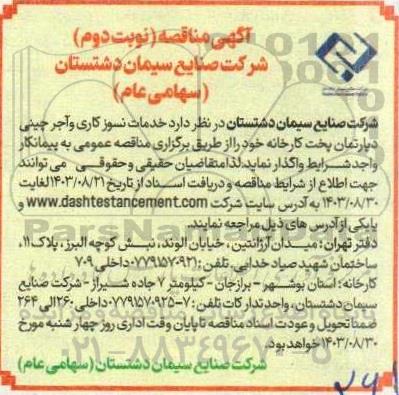 آگهی مناقصه (نوبت دوم)
شرکت صنایع سیمان دشتستان
(سهامی عام)
شرکت صنایع سیمان دشتستان در نظر دارد خدمات نسوز کاری و آجر چینی
دپارتمان پخت کارخانه خود را از طریق برگزاری مناقصه عمومی به پیمانکار
واجد شرایط واگذار نماید. لذا متقاضیان حقیقی و حقوقی می توانند
جهت اطلاع از شرایط مناقصه و دریافت اسناد از تاریخ ۱۴۰۳/۰۸/۲۱ لغایت
۱۴۰۳/۰۸/۳۰ به آدرس سایت شرکت www.dashtestancement.com و
یا یکی از آدرس های ذیل مراجعه نمایند.
دفتر تهران: میدان آرژانتین، خیابان الوند، نبش کوچه البرز، پلاک ۱۱،
ساختمان شهید صیاد خدایی. تلفن: داخلی ۷۰۹
کارخانه: استان بوشهر - برازجان - کیلومتر ۷ جاده شیراز - شرکت صنایع
سیمان دشتستان، واحد تدارکات تلفن: ۷-۰۷۷۹۱۵۷۰۹۲۵ داخلی ۲۶۰ الی ۲۶۴
ضمنا تحویل و عودت اسناد مناقصه تا پایان وقت اداری روز چهار شنبه مورخ
۱۴۰۳/۰۸/۳۰ خواهد بود.
شرکت صنایع سیمان دشتستان (سهامی عام)